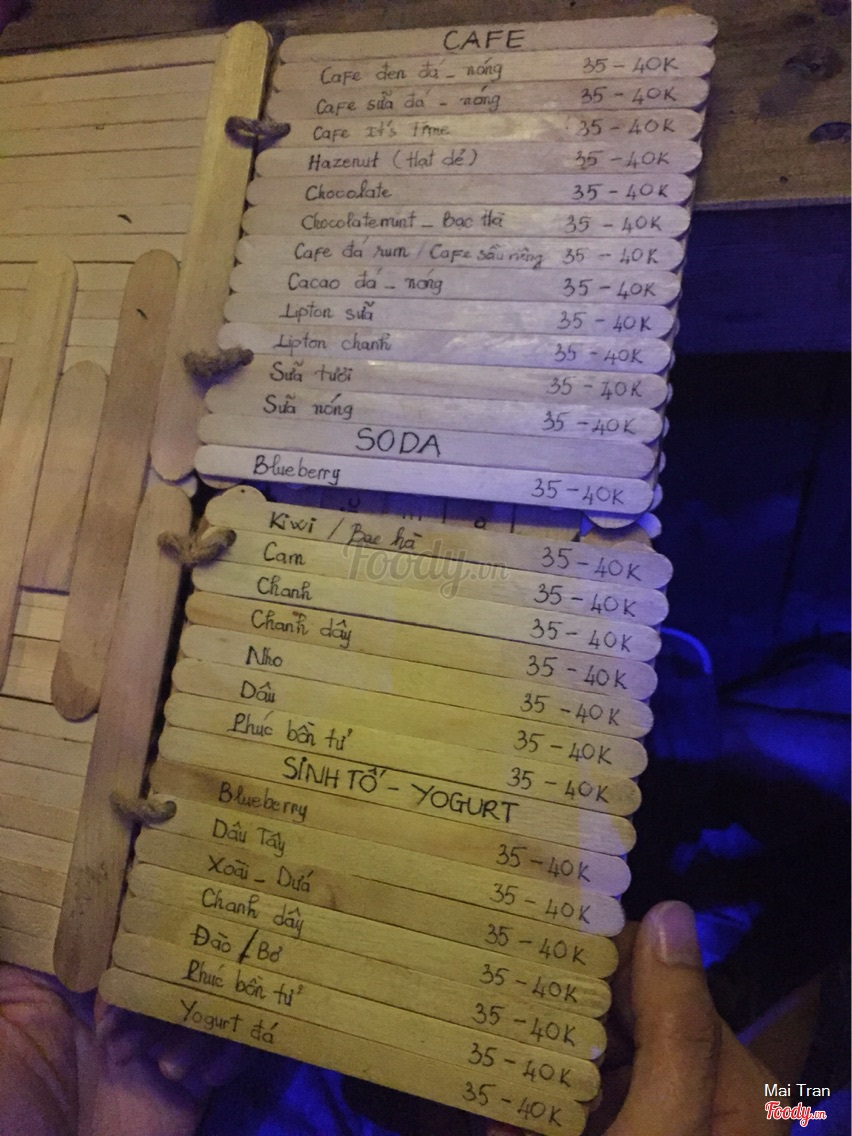 CAFE
Cafe đen đá - nóng 35 - 40K
Cafe sữa đá - nóng 35 - 40K
Cafe It's Time 35 - 40K
Hazenut (Hạt dẻ) 35 - 40K
Chocolate 35 - 40K
Chocolatemint - Bạc Hà 35 - 40K
Cafe đá rum / Cafe sầu riêng 35 - 40K
Cacao đá - nóng 35 - 40K
Lipton sữa 35 - 40K
Lipton chanh 35 - 40K
Sữa tươi 35 - 40K
Sữa nóng 35 - 40K
SODA
Blueberry 35 - 40K
Kiwi / Bạc hà 35 - 40K
Cam 35 - 40K
Chanh 35 - 40K
Chanh dây 35 - 40K
Nho 35 - 40K
Dâu 35 - 40K
Phúc bồn tử 35 - 40K
SINH TỐ - YOGURT
Blueberry 35 - 40K
Dâu Tây 35 - 40K
Xoài - Dứa 35 - 40K
Chanh dây 35 - 40K
Đào / Bơ 35 - 40K
Phúc bồn tử 35 - 40K
Yogurt đá 35 - 40K
Foody.vn
Mai Tran
Foody.vn